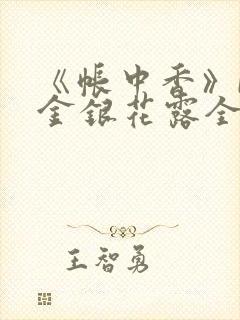 《帳中香》
金銀花露全
王智勇